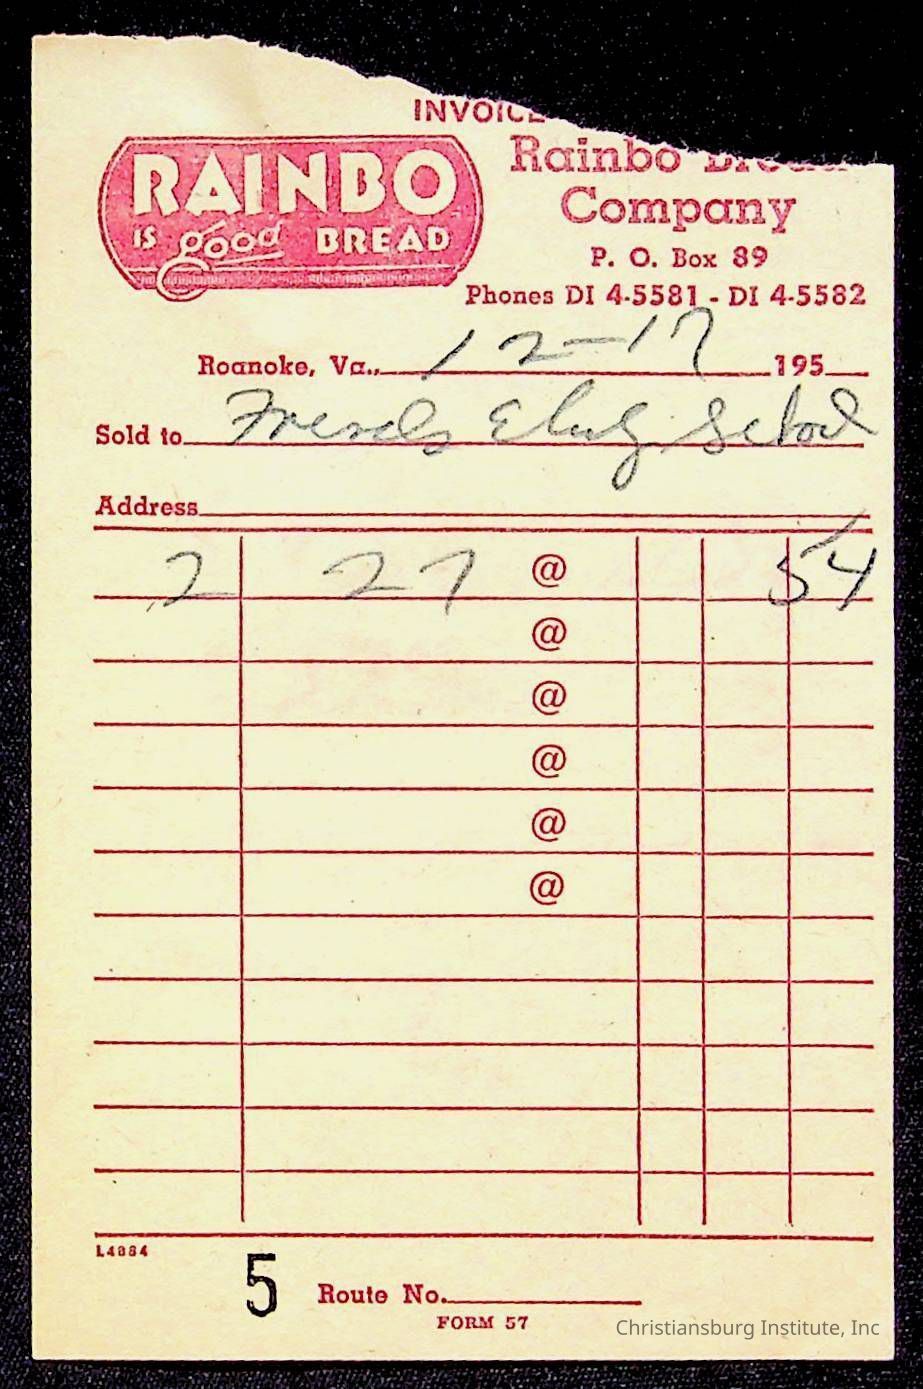 INVOICE
RAINBO
IS good BREAD
Rainbo Bread
Company
P. O. Box 89
Phones DI 4-5581 - DI 4-5582
Roanoke, Va., 12-17 195
Sold to Friends Elem School
Address
2 27 @ 54
@
@
@
@
@
L4884
5 Route No.
FORM 57
Christiansburg Institute, Inc